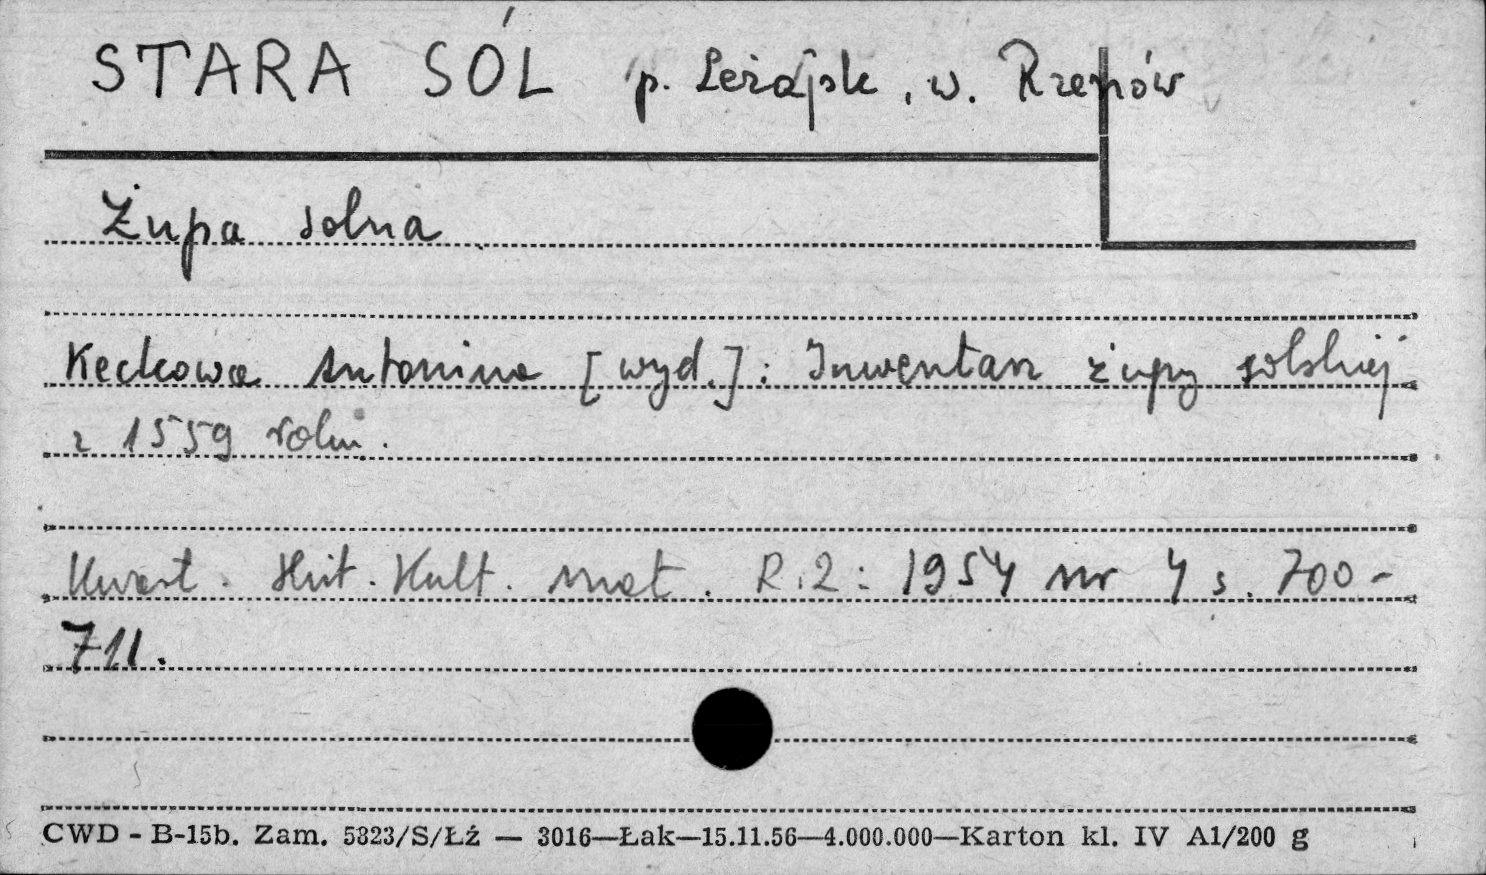 STARA SÓL p. Leżajsk, w. Rzeszów
Żupa solna
Keckowa Antonina [wyd.]: Inwentarz żupy solskiej
z 1559 roku.
Kwart. Hist. Kult. mat. R.2: 1954 nr 4 s. 700-
711.
CWD - B-15b. Zam. 5323/S/Łź — 3016—Łak—15.11.56—4.000.000—Karton kl. IV A1/200 g